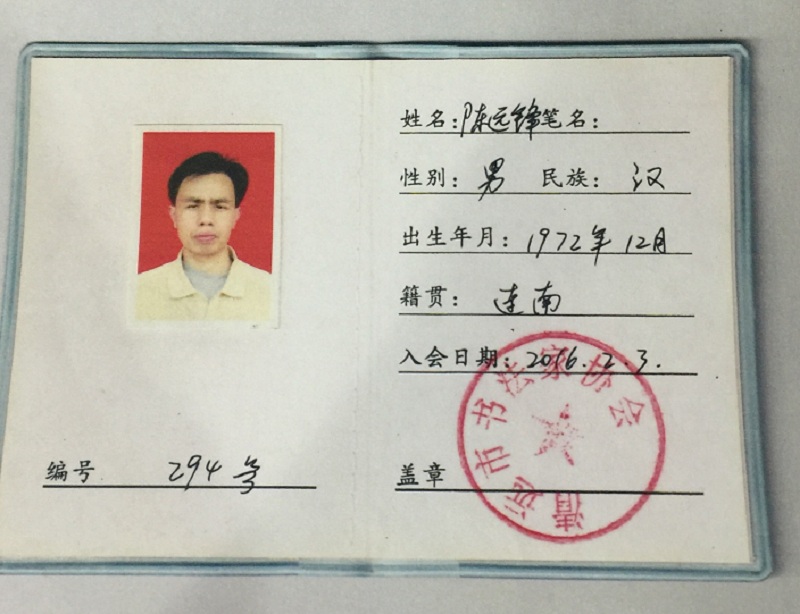 编号 294号
姓名：陈远锋笔名：
性别：男 民族：汉
出生年月：1972年12月
籍贯：连南
入会日期：2016.2.3.
盖章
清远市书法家协会